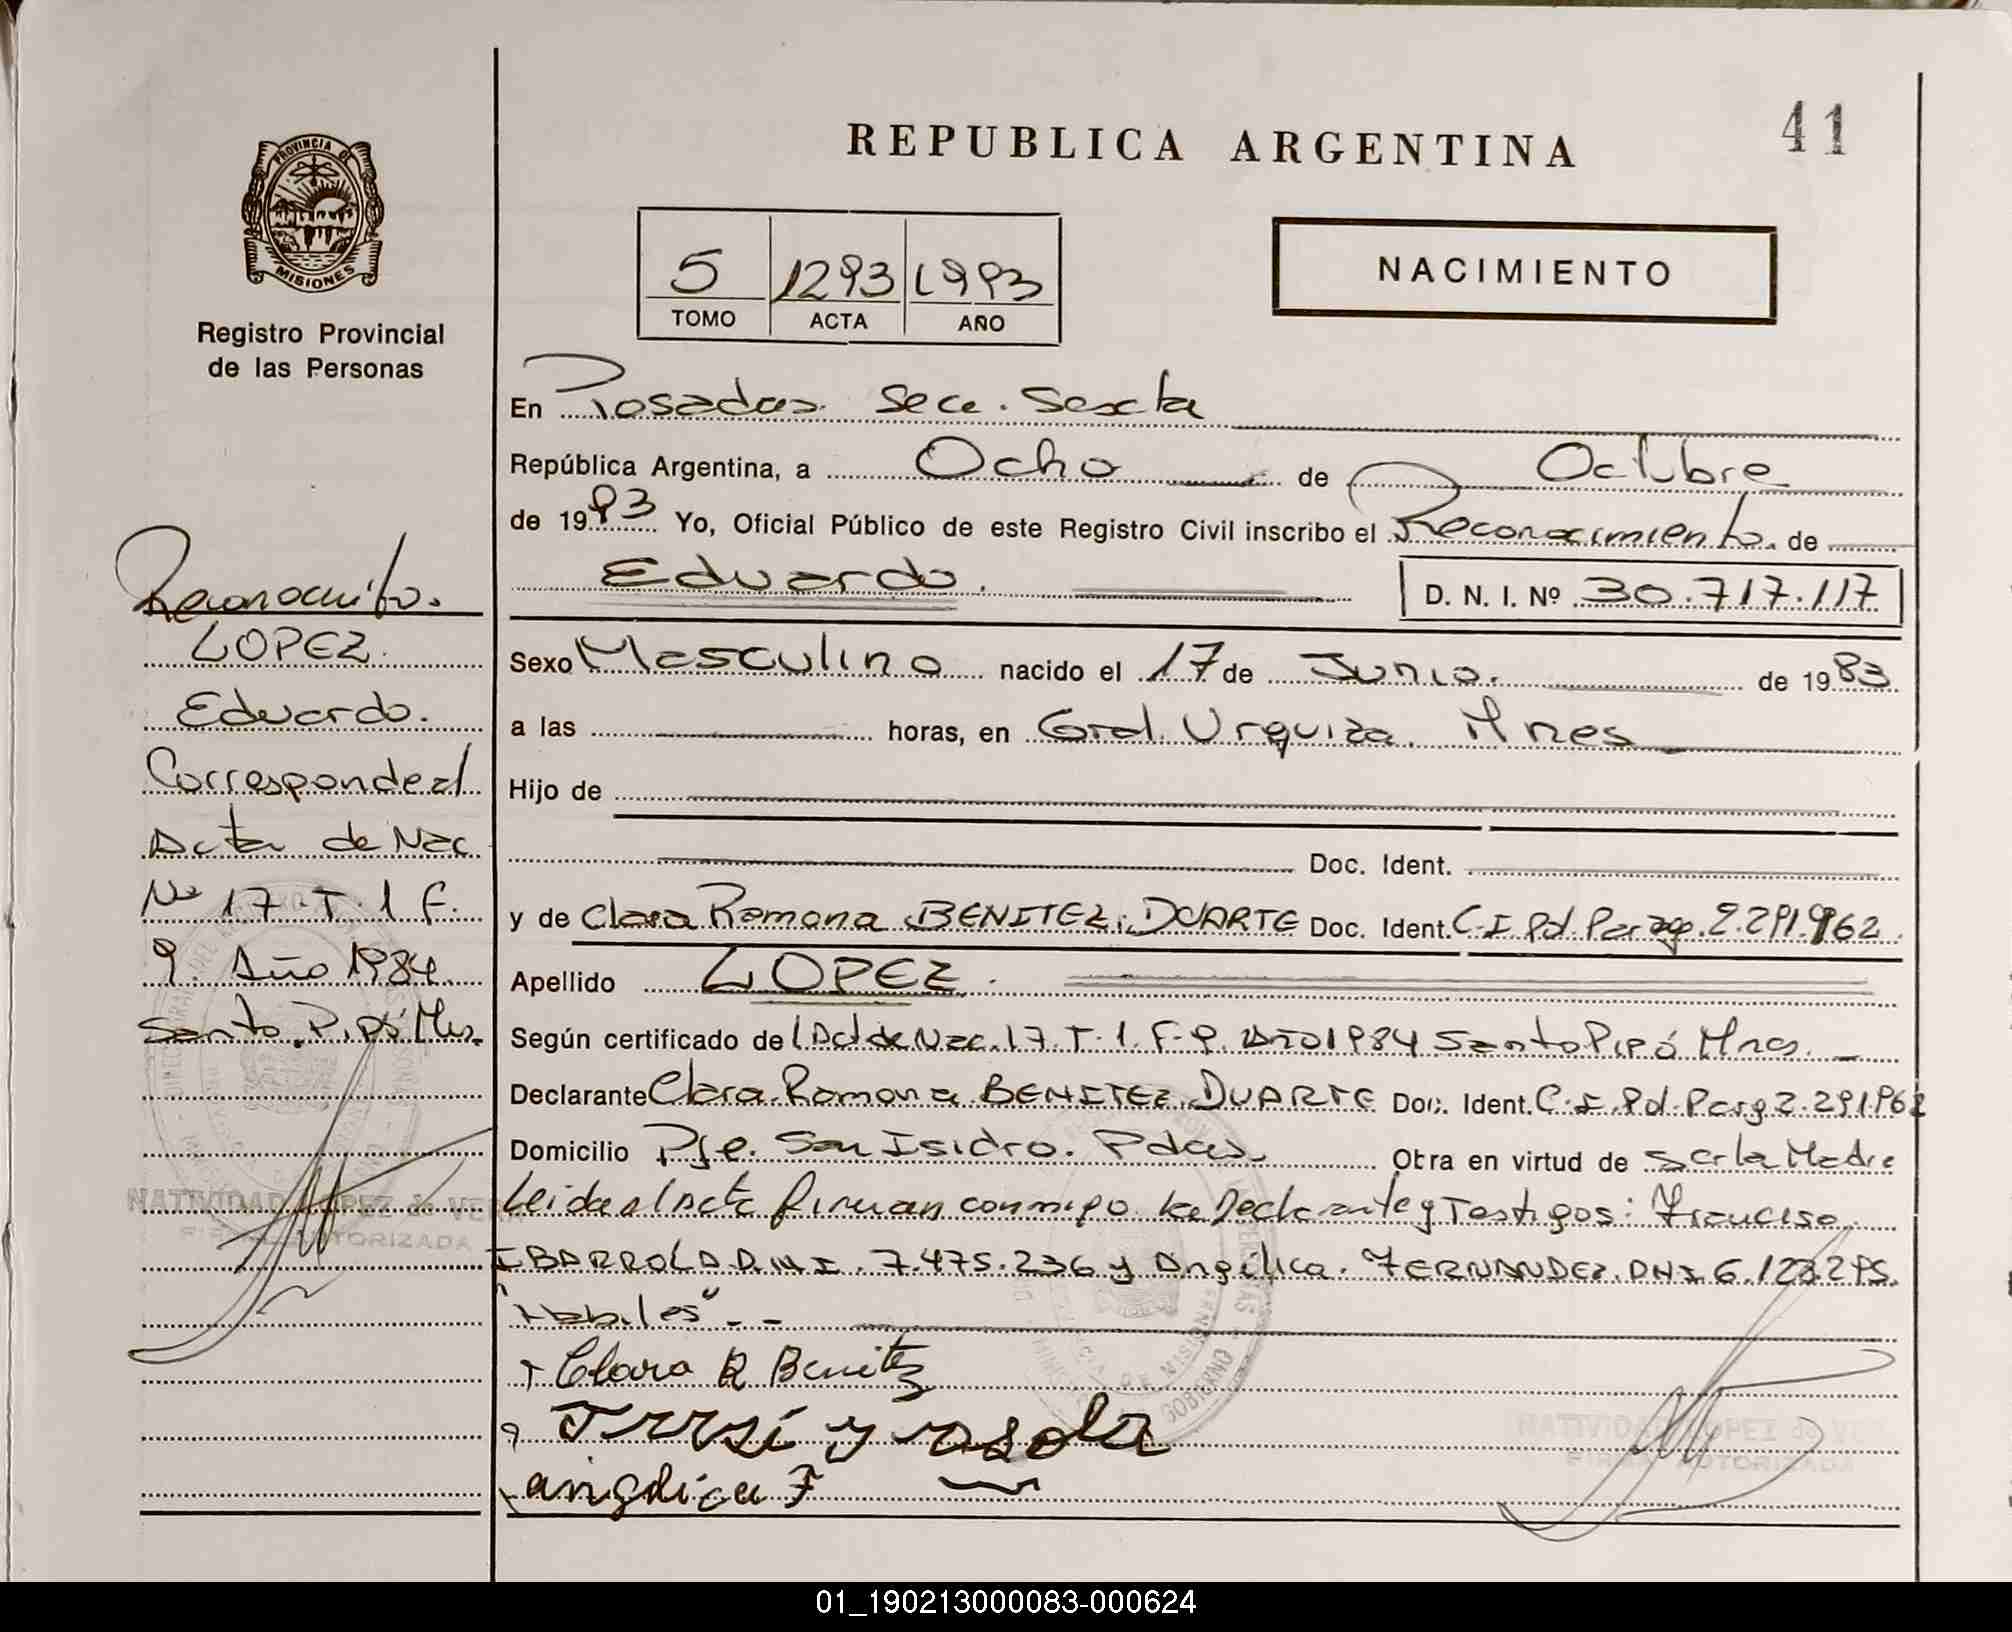 41
REPUBLICA ARGENTINA
PROVINCIA DE
MISIONES
Registro Provincial
de las Personas
5 1293 1993
TOMO ACTA AÑO
NACIMIENTO
En Posadas Secc. Sexta
República Argentina, a Ocho de Octubre
de 1993 Yo, Oficial Público de este Registro Civil inscribo el Reconocimiento de
Eduardo. D. N. I. Nº 30.717.117
Sexo Masculino nacido el 17 de Junio. de 1983
a las horas, en Gral. Urquiza. Mnes
Hijo de
Doc. Ident.
y de Clara Ramona BENITEZ DUARTE Doc. Ident. C.I. Pol. Parag. 2.291.962
Apellido LOPEZ.
Según certificado de Act de Nac. 17. T. 1. F. 9. Año 1984 Santo Pipó Mnes.
Declarante Clara Ramona BENITEZ DUARTE Doc. Ident. C.I. Pol. Parg 2.291.962
Domicilio Pje. San Isidro. Pdas. Obra en virtud de Ser la Madre
Leida el Acta firman conmigo la Declarante y Testigos: Francisco
IBARROLA D.N.I. 7.475.236 y Angélica. FERNANDEZ. DNI 6.123.295.
"Habiles" - -
Clara R Benitez
angelica F
NATIVIDAD LOPEZ de VE
FIRMA AUTORIZADA
Reconocmto.
LOPEZ
Eduardo.
Corresponde al
Acta de Nac
Nº 17 T. 1 F.
9. Año 1984
Santo Pipó Mnes.
NATIVIDAD LOPEZ de VE
FIRMA AUTORIZADA
01_190213000083-000624